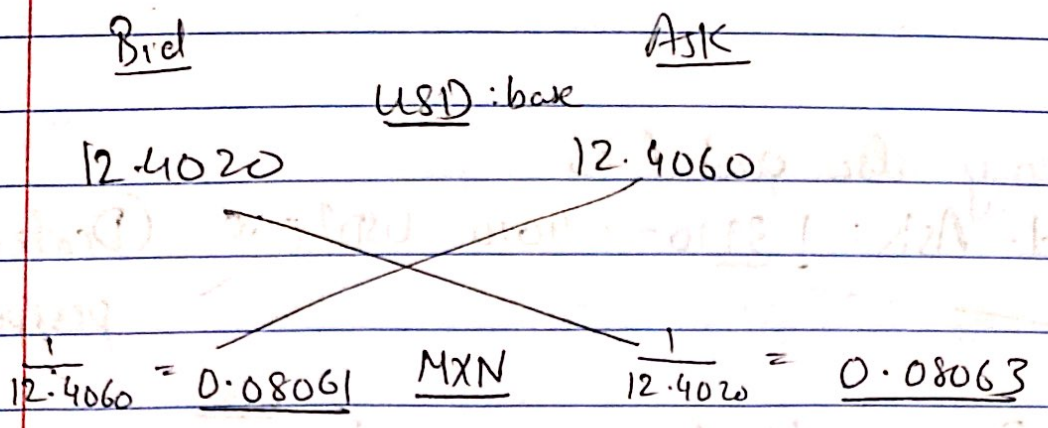 Bid Ask
USD : base
12.4020 12.4060
1/12.4060 = 0.08061 MXN 1/12.4020 = 0.08063